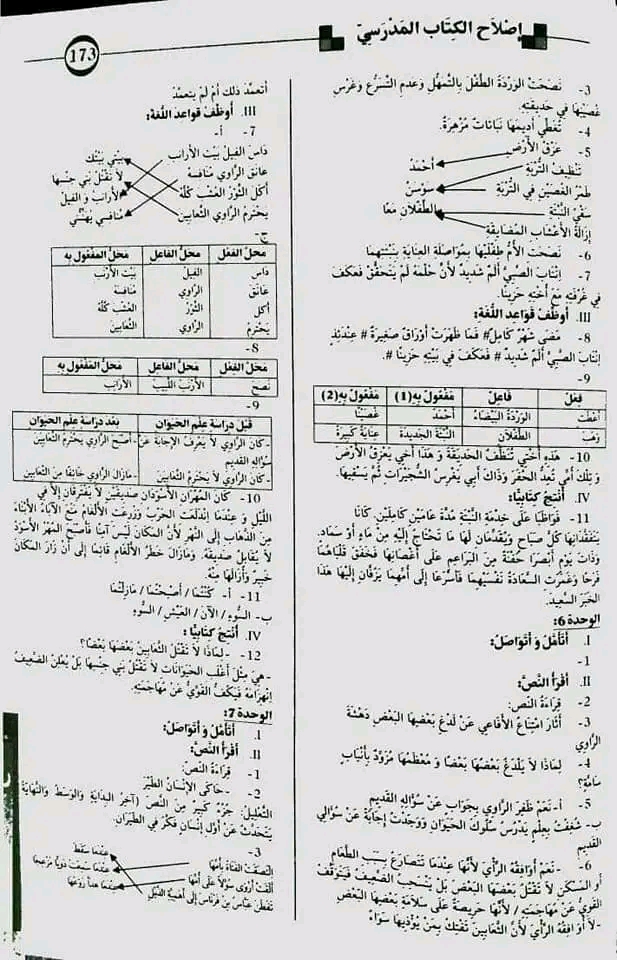 إصْلَاحُ الكِتَابِ المَدْرَسِيّ
173
3- نَصَحَتْ الوَرْدَةُ الطِّفْلَ بِالتَّمَهُّلِ وَعَدَمِ التَّسَرُّعِ وَغَرْسِ
غُصَيْنِهَا فِي حَدِيقَتِهِ.
4- تُغَطِّي أَدِيمَهَا نَبَاتَاتٌ مُزْهِرَةٌ.
5- عَزْقُ الأَرْضِ
تَنْظِيفُ التُّرْبَةِ
أَحْمَدُ
طَمْرُ الغُصَيْنِ فِي التُّرْبَةِ
سَوْسَنُ
سَقْيُ النَّبْتَةِ
الطِّفْلَانِ مَعًا
إِزَالَةُ الأَعْشَابِ المُضَايِقَةِ
6- نَصَحَتْ الأُمُّ طِفْلَيْهَا بِمُوَاصَلَةِ العِنَايَةِ بِنَبْتَتِهِمَا
7- إِنْتَابَ الصَّبِيَّ أَلَمٌ شَدِيدٌ لأَنَّ حُلْمَهُ لَمْ يَتَحَقَّقْ فَعَكَفَ
فِي غُرْفَتِهِ مَعَ أُخْتِهِ حَزِينًا.
III. أُوَظِّفُ قَوَاعِدَ اللُّغَةِ:
8- مَضَى شَهْرٌ كَامِلٌ# فَمَا ظَهَرَتْ أَوْرَاقٌ صَغِيرَةٌ # عِنْدَئِذٍ
إِنْتَابَ الصَّبِيَّ أَلَمٌ شَدِيدٌ# فَعَكَفَ فِي بَيْتِهِ حَزِينًا #.
9-
فِعْلٌ فَاعِلٌ مَفْعُولٌ بِهِ(1) مَفْعُولٌ بِهِ(2)
أَعْطَتْ الوَرْدَةُ البَيْضَاءُ أَحْمَدَ غُصَيْنًا
وَهَبَ الطِّفْلَانِ النَّبْتَةَ الجَدِيدَةَ عِنَايَةً كَبِيرَةً
10- هَذِهِ أُخْتِي تُنَظِّفُ الحَدِيقَةَ وَ هَذَا أَخِي يَعْزِقُ الأَرْضَ
وَ تِلْكَ أُمِّي تُعِدُّ الحُفَرَ وَذَاكَ أَبِي يَغْرِسُ الشُّجَيْرَاتِ ثُمَّ يَسْقِيهَا.
IV. أُنْتِجُ كِتَابِيًّا:
11- فَوَاظَبَا عَلَى خِدْمَةِ النَّبْتَةِ مُدَّةَ عَامَيْنِ كَامِلَيْنِ. كَانَا
يَتَفَقَّدَانِهَا كُلَّ صَبَاحٍ وَيُقَدِّمَانِ لَهَا مَا تَحْتَاجُ إِلَيْهِ مِنْ مَاءٍ أَوْ سَمَادٍ.
وَذَاتَ يَوْمٍ أَبْصَرَا حَفْنَةً مِنَ البَرَاعِمِ عَلَى أَغْصَانِهَا فَخَفَقَ قَلْبَاهُمَا
فَرَحًا وَغَمَرَتِ السَّعَادَةُ نَفْسَيْهِمَا فَأَسْرَعَا إِلَى أُمِّهِمَا يَزُفَّانِ إِلَيْهَا هَذَا
الخَبَرَ السَّعِيدَ.
الوحدة 6:
I. أَتَأَمَّلُ وَ أَتَوَاصَلُ:
1-
II. أَقْرَأُ النَّصَّ:
2- قِرَاءَةُ النَّصِّ:
3- أَثَارَ امْتِنَاعُ الأَفَاعِي عَنْ لَدْغِ بَعْضِهَا البَعْضِ دَهْشَةَ
الرَّاوِي
4- لِمَاذَا لَا يَلْدَغُ بَعْضُهَا بَعْضًا وَ مُعْظَمُهَا مُزَوَّدٌ بِأَنْيَابٍ
سَامَّةٍ؟
5- أ- نَعَمْ ظَفِرَ الرَّاوِي بِجَوَابٍ عَنْ سُؤَالِهِ القَدِيمِ
ب- شُغِفْتُ بِعِلْمٍ يَدْرُسُ سُلُوكَ الحَيَوَانِ وَوَجَدْتُ إِجَابَةً عَنْ سُؤَالِي
القَدِيمِ
6- - نَعَمْ أُوَافِقُهُ الرَّأْيَ لأَنَّهَا عِنْدَمَا تَتَصَارَعُ بِسَبَبِ الطَّعَامِ
أَوِ المَسْكَنِ لَا تَقْتُلُ بَعْضَهَا البَعْضَ بَلْ يَنْسَحِبُ الضَّعِيفُ فَيَتَوَقَّفُ
القَوِيُّ عَنْ مُهَاجَمَتِهِ / لأَنَّهَا حَرِيصَةٌ عَلَى سَلَامَةِ بَعْضِهَا البَعْضِ
-لَا أُوَافِقُهُ الرَّأْيَ لأَنَّ الثَّعَابِينَ تَفْتِكُ بِمَنْ يُؤْذِيهَا سَوَاءٌ
أَتَعَمَّدَ ذَلِكَ أَمْ لَمْ يَتَعَمَّدْ
III. أُوَظِّفُ قَوَاعِدَ اللُّغَةِ:
7- أ-
دَاسَ الفِيلُ بَيْتَ الأَرَانِبِ
بَيْتِي بَيْتُكَ
عَانَقَ الرَّاوِي مُنَافِسَهُ
لَا تَقْتُلُ بَنِي جِنْسِهَا
أَكَلَ الثَّوْرُ العُشْبَ كُلَّهُ
الأَرَانِبَ وَ الفِيلَ
يَحْتَرِمُ الرَّاوِي الثَّعَابِينَ
مُنَافِسِي يُهَنِّئُنِي
ج-
مَحَلُّ الفِعْلِ مَحَلُّ الفَاعِلِ مَحَلُّ المَفْعُولِ بِهِ
دَاسَ الفِيلُ بَيْتَ الأَرْنَبِ
عَانَقَ الرَّاوِي مُنَافِسَهُ
أَكَلَ الثَّوْرُ العُشْبَ كُلَّهُ
يَحْتَرِمُ الرَّاوِي الثَّعَابِينَ
8-
مَحَلُّ الفِعْلِ مَحَلُّ الفَاعِلِ مَحَلُّ المَفْعُولِ بِهِ
نَصَحَ الأَرْنَبُ اللَّبِيبُ الأَرَانِبَ
9-
قَبْلَ دِرَاسَةِ عِلْمِ الحَيَوَانِ بَعْدَ دِرَاسَةِ عِلْمِ الحَيَوَانِ
- كَانَ الرَّاوِي لَا يَعْرِفُ الإِجَابَةَ عَنْ سُؤَالِهِ القَدِيمِ - أَصْبَحَ الرَّاوِي يَحْتَرِمُ الثَّعَابِينَ
- كَانَ الرَّاوِي لَا يَحْتَرِمُ الثَّعَابِينَ - مَازَالَ الرَّاوِي خَائِفًا مِنَ الثَّعَابِينِ
10- كَانَ المُهْرَانِ الأَسْوَدَانِ صَدِيقَيْنِ لَا يَفْتَرِقَانِ إِلَّا فِي
اللَّيْلِ وَ عِنْدَمَا انْدَلَعَتِ الحَرْبُ وَزُرِعَتِ الأَلْغَامُ مَنَعَ الآبَاءُ الأَبْنَاءَ
مِنَ الذَّهَابِ إِلَى النَّهْرِ لأَنَّ المَكَانَ لَيْسَ آمِنًا فَأَصْبَحَ المُهْرُ الأَسْوَدُ
لَا يُقَابِلُ صَدِيقَهُ. وَمَازَالَ خَطَرُ الأَلْغَامِ قَائِمًا إِلَى أَنْ زَارَ المَكَانَ
خَبِيرٌ وَأَزَالَهَا مِنْهُ.
11- أ- كُنْتُمَا / أَصْبَحْتُمَا / مَازِلْتُمَا
ب- السُّوءِ / الآنَ / العَيْشِ / السُّوءِ
IV. أُنْتِجُ كِتَابِيًّا :
12- - لِمَاذَا لَا تَقْتُلُ الثَّعَابِينُ بَعْضُهَا بَعْضًا؟
- هِيَ مِثْلُ أَغْلَبِ الحَيَوَانَاتِ لَا تَقْتُلُ بَنِي جِنْسِهَا بَلْ يُعْلِنُ الضَّعِيفُ
انْهِزَامَهُ فَيَكُفُّ القَوِيُّ عَنْ مُهَاجَمَتِهِ.
الوحدة 7:
I. أَتَأَمَّلُ وَ أَتَوَاصَلُ:
II. أَقْرَأُ النَّصَّ:
1- قِرَاءَةُ النَّصِّ:
2- - حَاكَى الإِنْسَانُ الطَّيْرَ
التَّعْلِيلُ: جُزْءٌ كَبِيرٌ مِنَ النَّصِّ (آخِرُ البِدَايَةِ وَالوَسَطُ وَالنِّهَايَةُ
يَتَحَدَّثُ عَنْ أَوَّلِ إِنْسَانٍ فَكَّرَ فِي الطَّيَرَانِ.
3-
الْتَصَقَتِ الفَتَاةُ بِأُمِّهَا
عِنْدَمَا سَقَطَ
أَلْقَتْ أَرْوَى سُؤَالًا عَلَى أُمِّهَا
عِنْدَمَا سَمِعَتْ دَوِيًّا مُزْعِجًا
تَفَطَّنَ عَبَّاسُ بْنُ فِرْنَاسٍ إِلَى أَهَمِّيَّةِ الذَّيْلِ
عِنْدَمَا هَدَأَ رَوْعُهَا